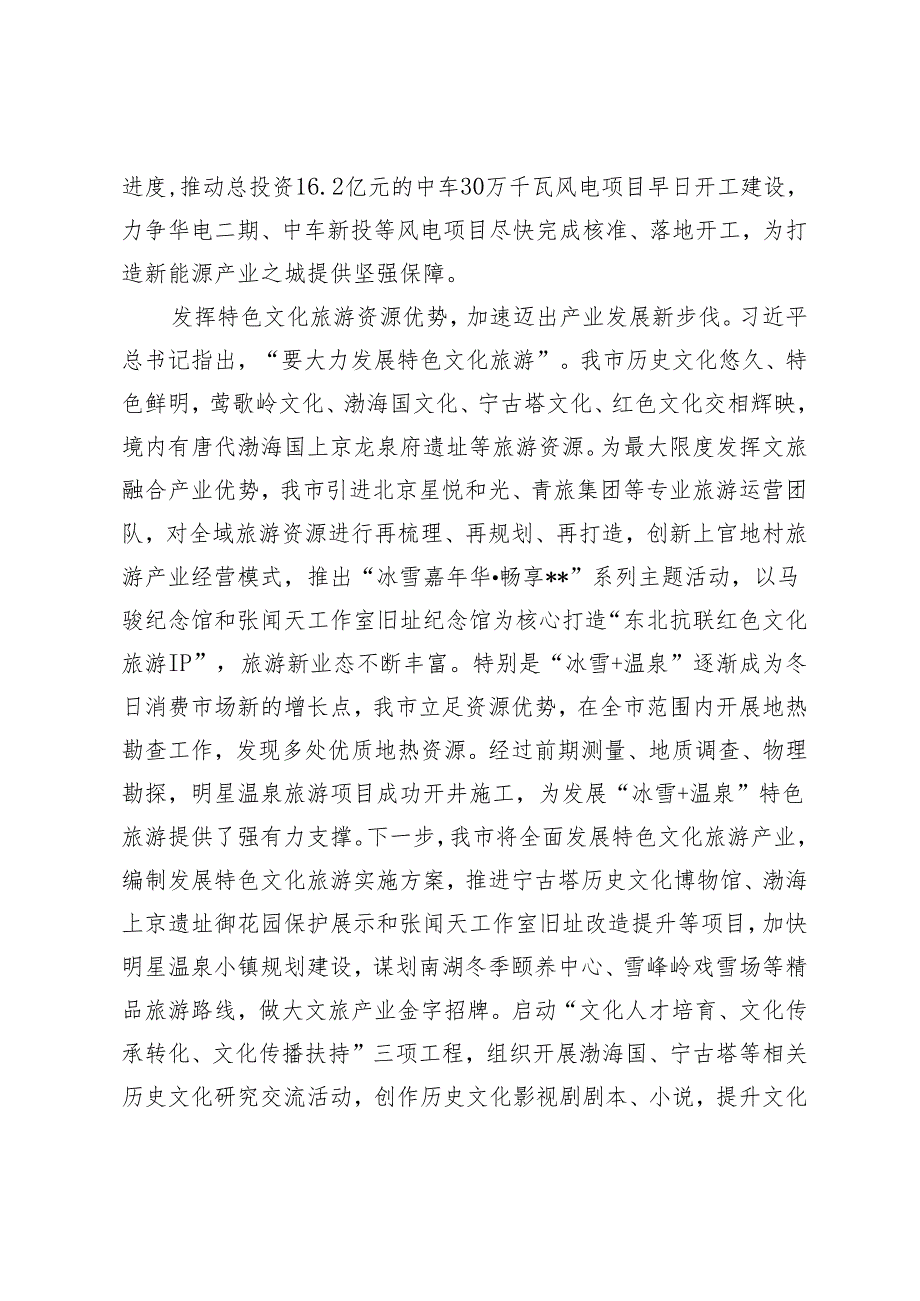 进度,推动总投资16.2亿元的中车30万千瓦风电项目早日开工建设，
力争华电二期、中车新投等风电项目尽快完成核准、落地开工，为打
造新能源产业之城提供坚强保障。
发挥特色文化旅游资源优势，加速迈出产业发展新步伐。习近平
总书记指出，“要大力发展特色文化旅游”。我市历史文化悠久、特
色鲜明，莺歌岭文化、渤海国文化、宁古塔文化、红色文化交相辉映，
境内有唐代渤海国上京龙泉府遗址等旅游资源。为最大限度发挥文旅
融合产业优势，我市引进北京星悦和光、青旅集团等专业旅游运营团
队，对全域旅游资源进行再梳理、再规划、再打造，创新上官地村旅
游产业经营模式，推出“冰雪嘉年华•畅享**”系列主题活动，以马
骏纪念馆和张闻天工作室旧址纪念馆为核心打造“东北抗联红色文化
旅游IP”，旅游新业态不断丰富。特别是“冰雪+温泉”逐渐成为冬
日消费市场新的增长点，我市立足资源优势，在全市范围内开展地热
勘查工作，发现多处优质地热资源。经过前期测量、地质调查、物理
勘探，明星温泉旅游项目成功开井施工，为发展“冰雪+温泉”特色
旅游提供了强有力支撑。下一步，我市将全面发展特色文化旅游产业，
编制发展特色文化旅游实施方案，推进宁古塔历史文化博物馆、渤海
上京遗址御花园保护展示和张闻天工作室旧址改造提升等项目，加快
明星温泉小镇规划建设，谋划南湖冬季颐养中心、雪峰岭戏雪场等精
品旅游路线，做大文旅产业金字招牌。启动“文化人才培育、文化传
承转化、文化传播扶持”三项工程，组织开展渤海国、宁古塔等相关
历史文化研究交流活动，创作历史文化影视剧剧本、小说，提升文化